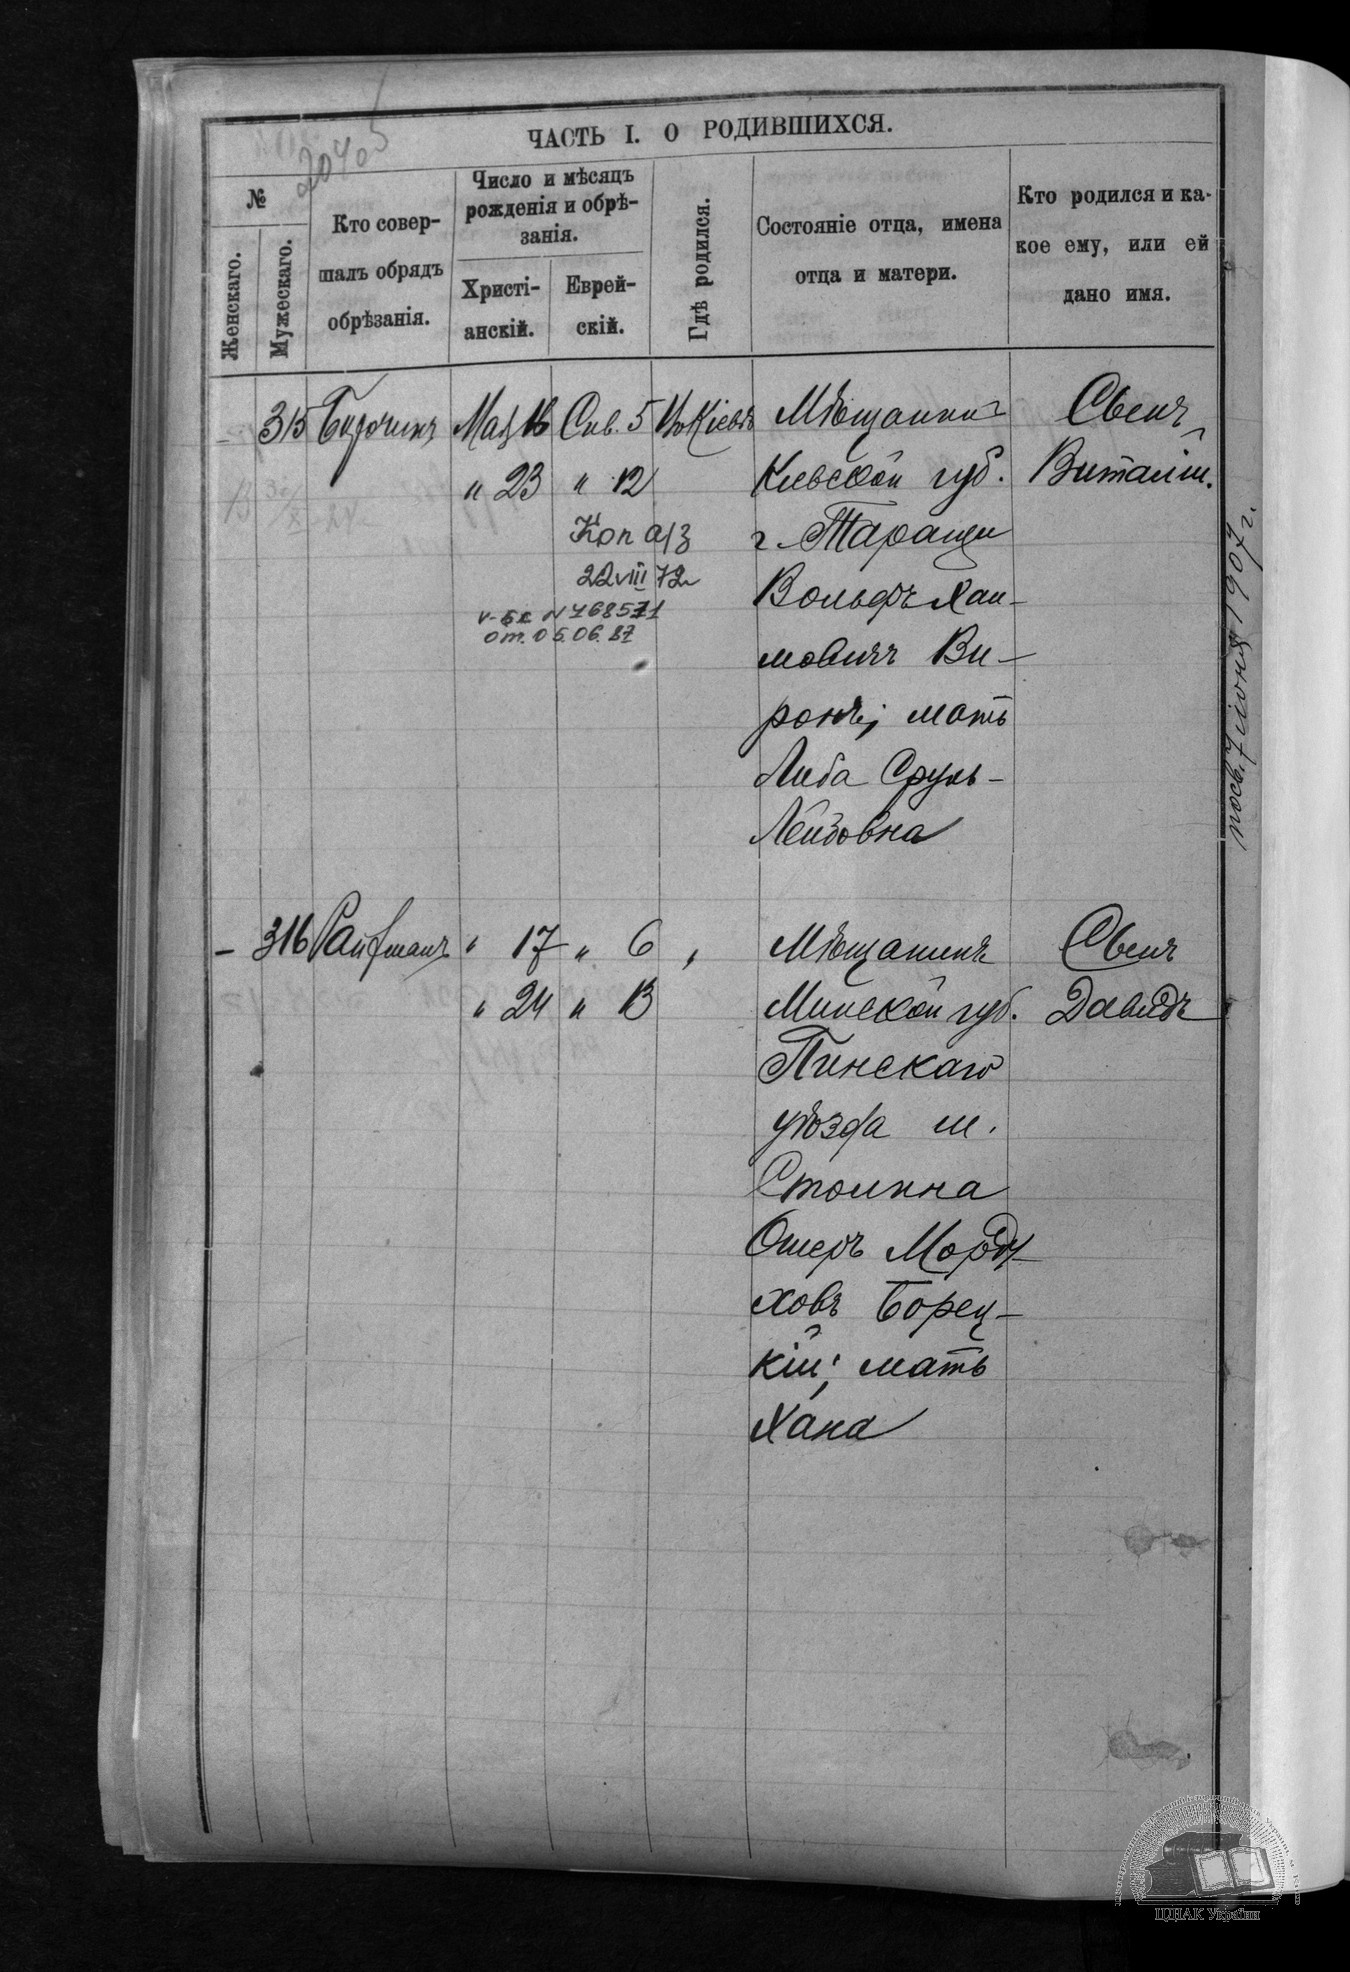 ЧАСТЬ I. О РОДИВШИХСЯ.
№
Женскаго.
Мужескаго.
Кто совер-
шалъ обрядъ
обрѣзанія.
Число и мѣсяцъ
рожденія и обрѣ-
занія.
Христі-
анскій.
Еврей-
скій.
Гдѣ родился.
Состояніе отца, имена
отца и матери.
Кто родился и ка-
кое ему, или ей
дано имя.
315
Мая 16
Сив. 5
Въ Кіевѣ
" 23
" 12
Коп а/з
22 VIII 72
N 768571
от. 05.06.87
Мѣщанинъ
Кіевской губ.
г. Таращи
Вольфъ Хаи-
мовичъ Ви-
ронъ; мать
Либа Сруль-
Лейбовна
Сынъ
Виталій.
– 316 Райфманъ
" 17
" 6
"
" 24
" 13
Мѣщанинъ
Минской губ.
Пинскаго
уѣзда м.
Столина
Ошеръ Морду-
ховъ Борец-
кій; мать
Хана
Сынъ
Давидъ
7 іюня 1907 г.
ЦДІАК України